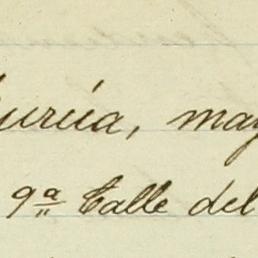 uria, may
9ª Calle del